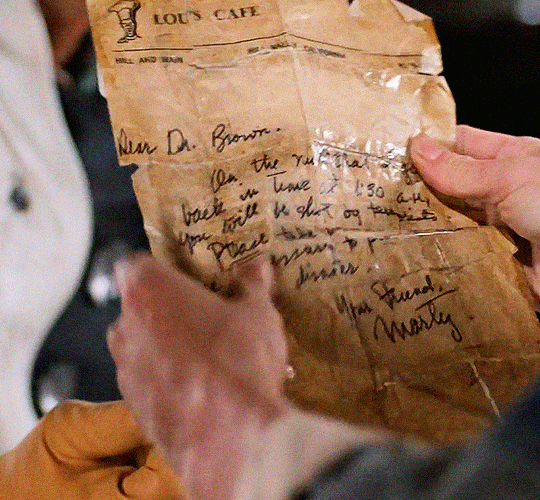 LOU'S CAFE
HILL AND MAIN HILL VALLEY, CALIFORNIA
Dear Dr. Brown.
On the night that I go
back in time at 1:30 A.M.
you will be shot by terrorists.
Please take
to
disaster.
Your Friend.
Marty.